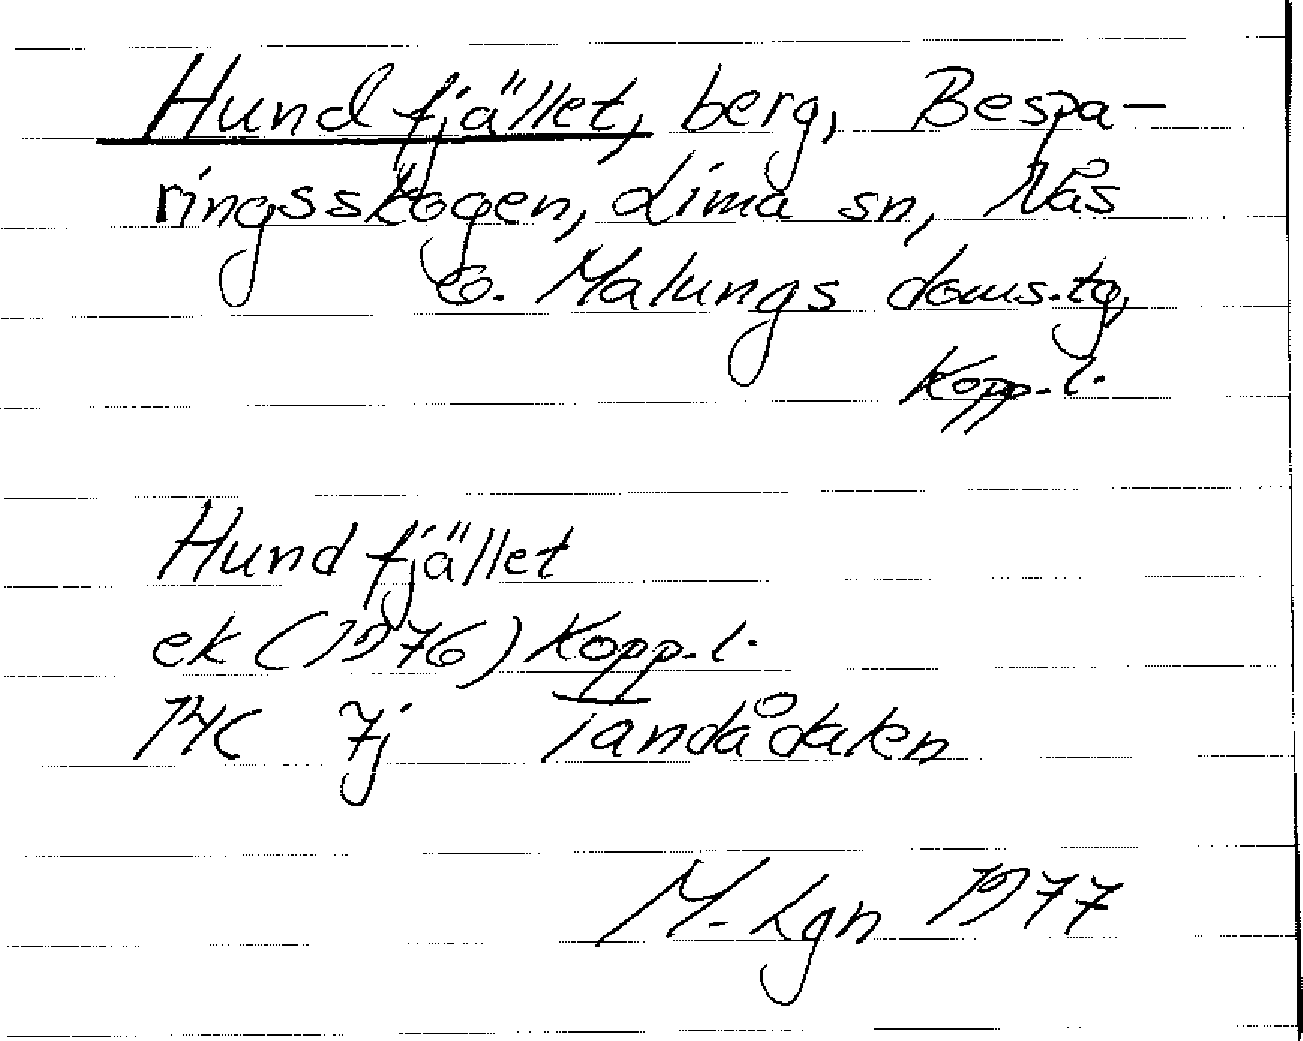 Hundfjället, berg, Bespa-
ringsskogen, Lima sn, Nås
o. Malungs doms.tg,
Kopp.l.
Hundfjället
ek (1976) Kopp.l.
14C 7j Tandådalen
M. Lgn 1977